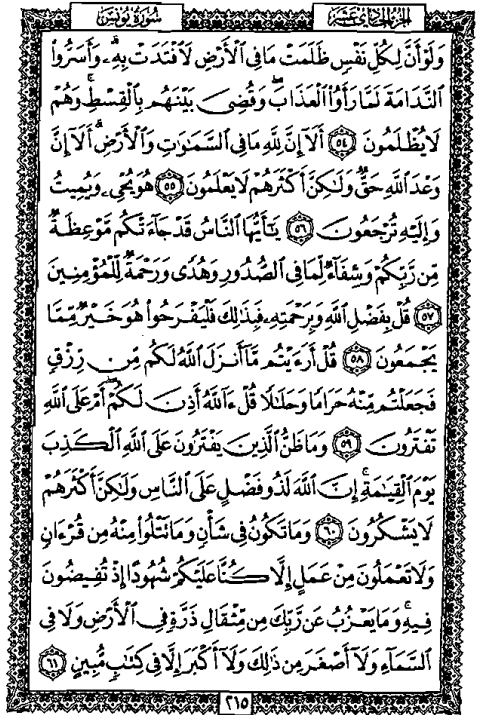 الجزء الحادي عشر
سورة يونس
وَلَوْ أَنَّ لِكُلِّ نَفْسٍ ظَلَمَتْ مَا فِي ٱلْأَرْضِ لَٱفْتَدَتْ بِهِۦ وَأَسَرُّوا۟
ٱلنَّدَامَةَ لَمَّا رَأَوُا۟ ٱلْعَذَابَ ۖ وَقُضِىَ بَيْنَهُم بِٱلْقِسْطِ ۚ وَهُمْ
لَا يُظْلَمُونَ ٥٤ أَلَآ إِنَّ لِلَّهِ مَا فِي ٱلسَّمَٰوَٰتِ وَٱلْأَرْضِ ۗ أَلَآ إِنَّ
وَعْدَ ٱللَّهِ حَقٌّ وَلَٰكِنَّ أَكْثَرَهُمْ لَا يَعْلَمُونَ ٥٥ هُوَ يُحْىِۦ وَيُمِيتُ
وَإِلَيْهِ تُرْجَعُونَ ٥٦ يَٰٓأَيُّهَا ٱلنَّاسُ قَدْ جَآءَتْكُم مَّوْعِظَةٌ
مِّن رَّبِّكُمْ وَشِفَآءٌ لِّمَا فِي ٱلصُّدُورِ وَهُدًى وَرَحْمَةٌ لِّلْمُؤْمِنِينَ
٥٧ قُلْ بِفَضْلِ ٱللَّهِ وَبِرَحْمَتِهِۦ فَبِذَٰلِكَ فَلْيَفْرَحُوا۟ هُوَ خَيْرٌ مِّمَّا
يَجْمَعُونَ ٥٨ قُلْ أَرَءَيْتُم مَّآ أَنزَلَ ٱللَّهُ لَكُم مِّن رِّزْقٍ
فَجَعَلْتُم مِّنْهُ حَرَامًا وَحَلَٰلًا قُلْ ءَآللَّهُ أَذِنَ لَكُمْ ۖ أَمْ عَلَى ٱللَّهِ
تَفْتَرُونَ ٥٩ وَمَا ظَنُّ ٱلَّذِينَ يَفْتَرُونَ عَلَى ٱللَّهِ ٱلْكَذِبَ
يَوْمَ ٱلْقِيَٰمَةِ ۗ إِنَّ ٱللَّهَ لَذُو فَضْلٍ عَلَى ٱلنَّاسِ وَلَٰكِنَّ أَكْثَرَهُمْ
لَا يَشْكُرُونَ ٦٠ وَمَا تَكُونُ فِي شَأْنٍ وَمَا تَتْلُوا۟ مِنْهُ مِن قُرْءَانٍ
وَلَا تَعْمَلُونَ مِنْ عَمَلٍ إِلَّا كُنَّا عَلَيْكُمْ شُهُودًا إِذْ تُفِيضُونَ
فِيهِ ۚ وَمَا يَعْزُبُ عَن رَّبِّكَ مِن مِّثْقَالِ ذَرَّةٍ فِي ٱلْأَرْضِ وَلَا فِي
ٱلسَّمَآءِ وَلَآ أَصْغَرَ مِن ذَٰلِكَ وَلَآ أَكْبَرَ إِلَّا فِي كِتَٰبٍ مُّبِينٍ ٦١
٢١٥